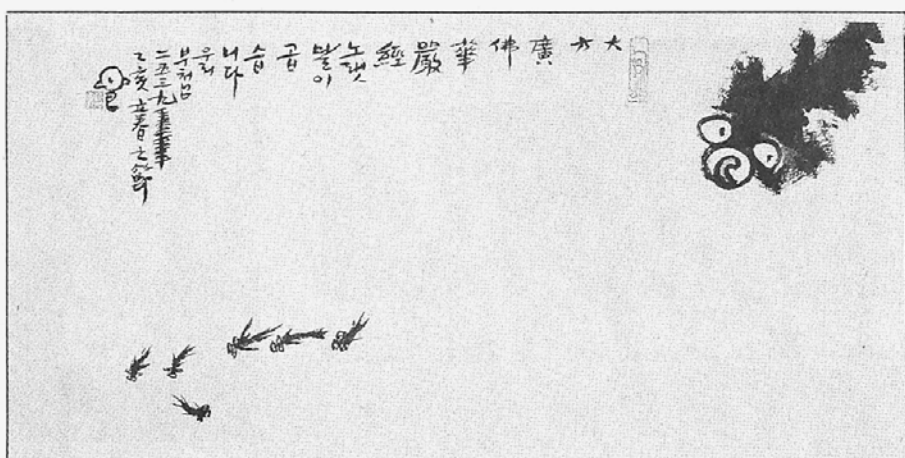 大
方
廣
佛
華
嚴
經
노랫
말이
곱
습
니다
우리
부처님
二五三九
乙亥立春之節